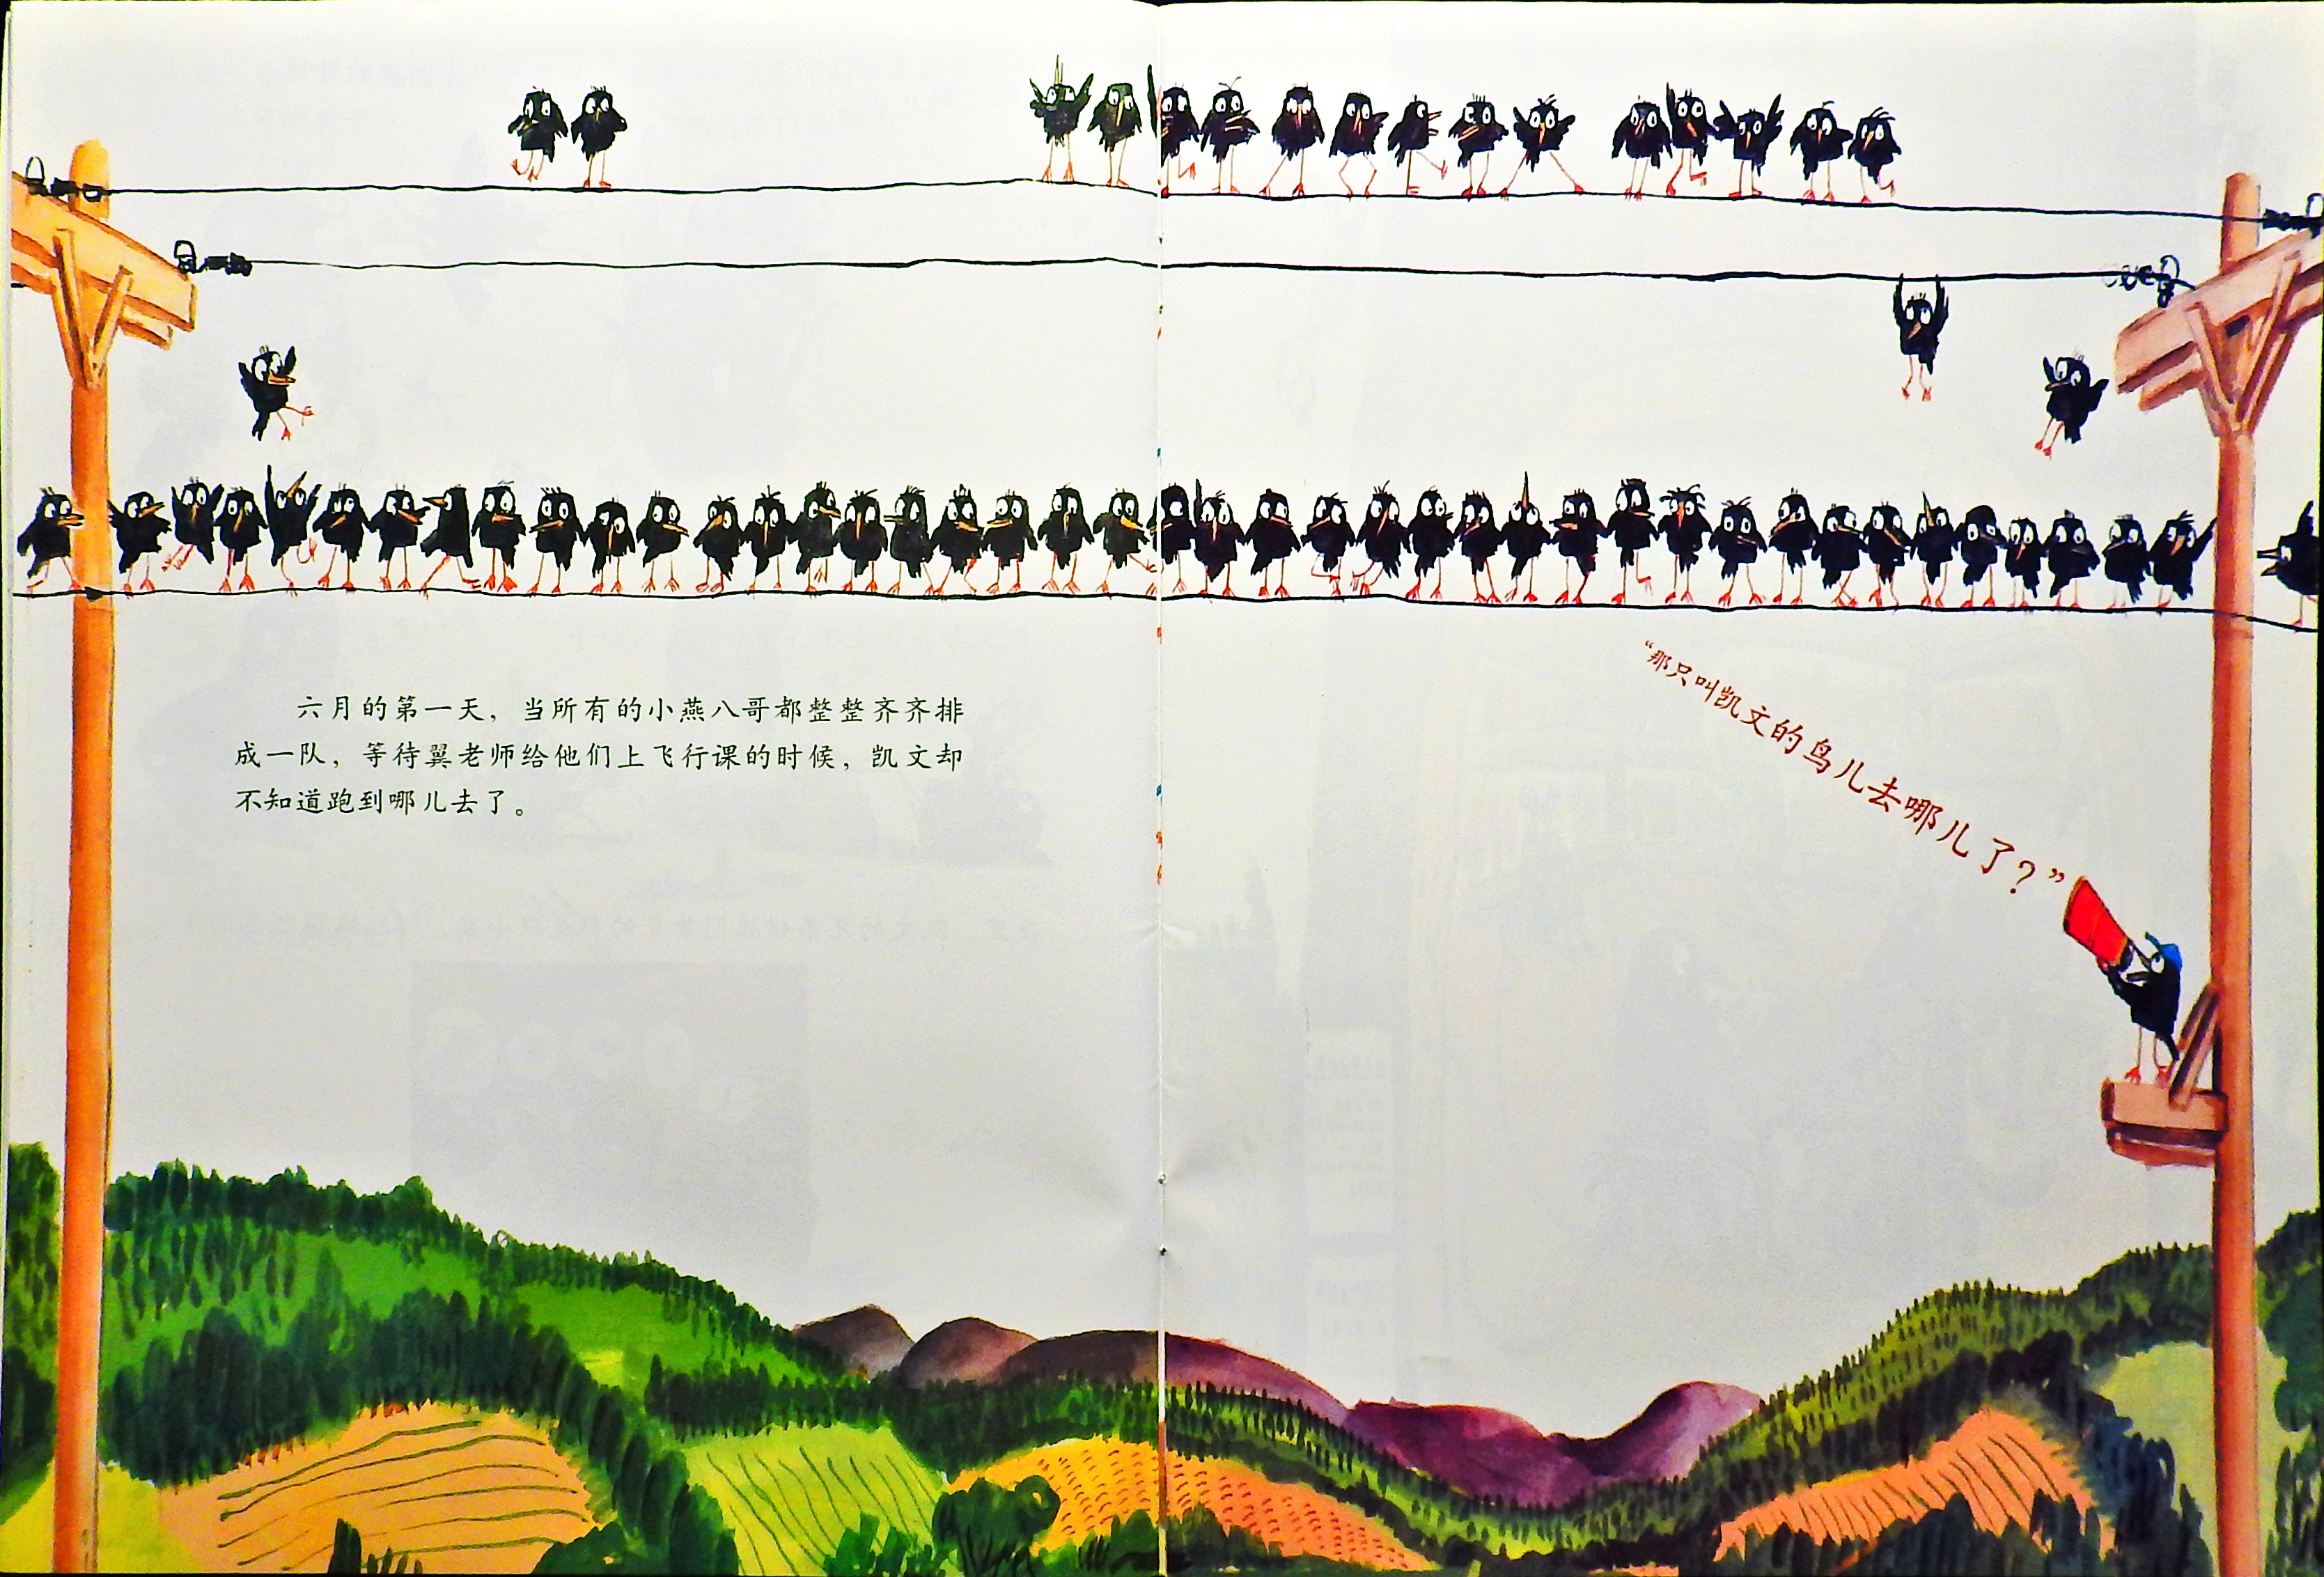 六月的第一天，当所有的小燕八哥都整整齐齐排
成一队，等待翼老师给他们上飞行课的时候，凯文却
不知道跑到哪儿去了。
“那只叫凯文的鸟儿去哪儿了？”